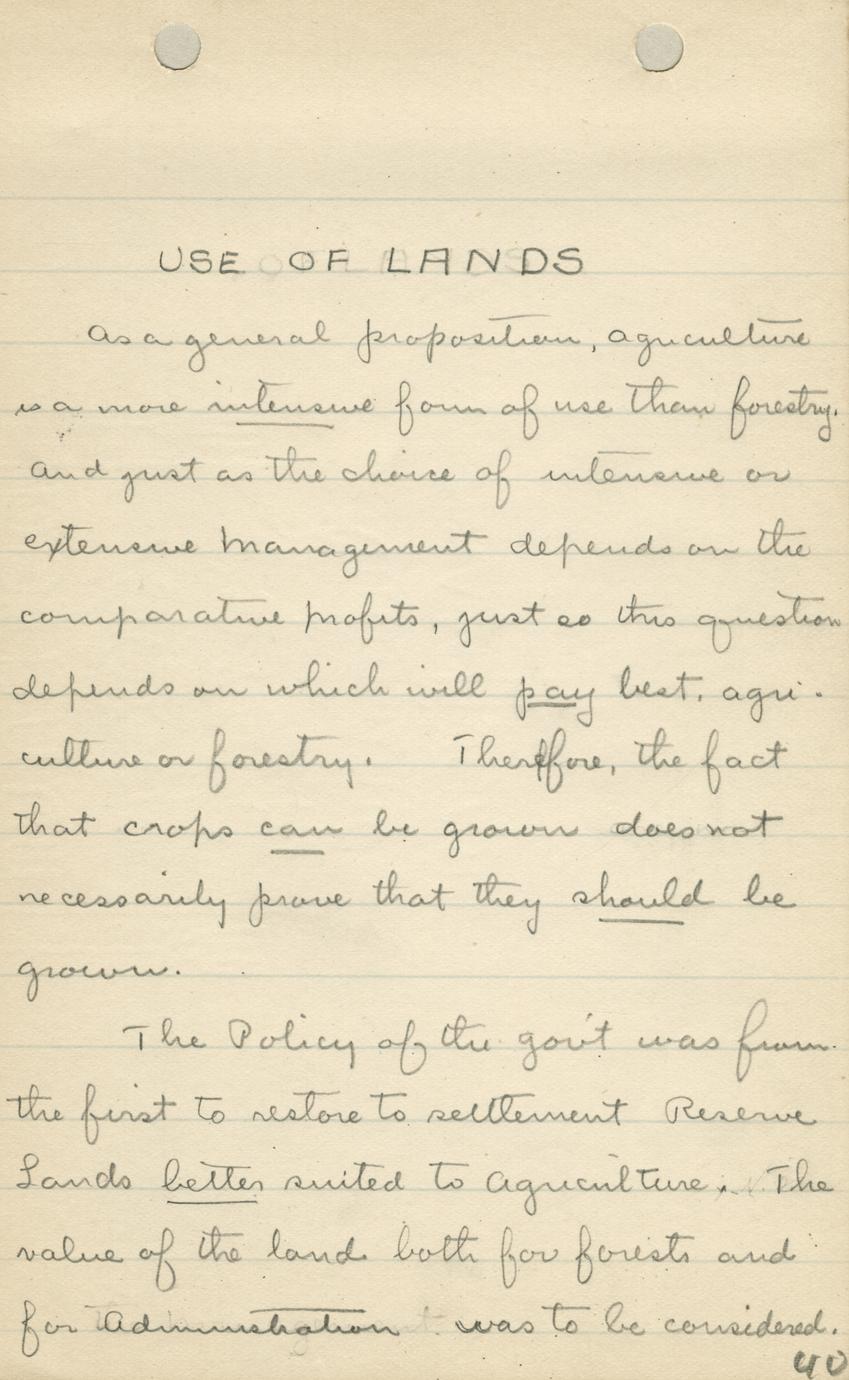 USE OF LANDS
As a general proposition, agriculture
is a more intensive form of use than forestry.
And just as the choice of intensive or
extensive Management depends on the
comparative profits, just so this question
depends on which will pay best, agri-
culture or forestry. Therefore, the fact
that crops can be grown does not
necessarily prove that they should be
grown.
The Policy of the gov't was from
the first to restore to settlement Reserve
Lands better suited to Agriculture. The
value of the land both for forests and
for Administration was to be considered.
40